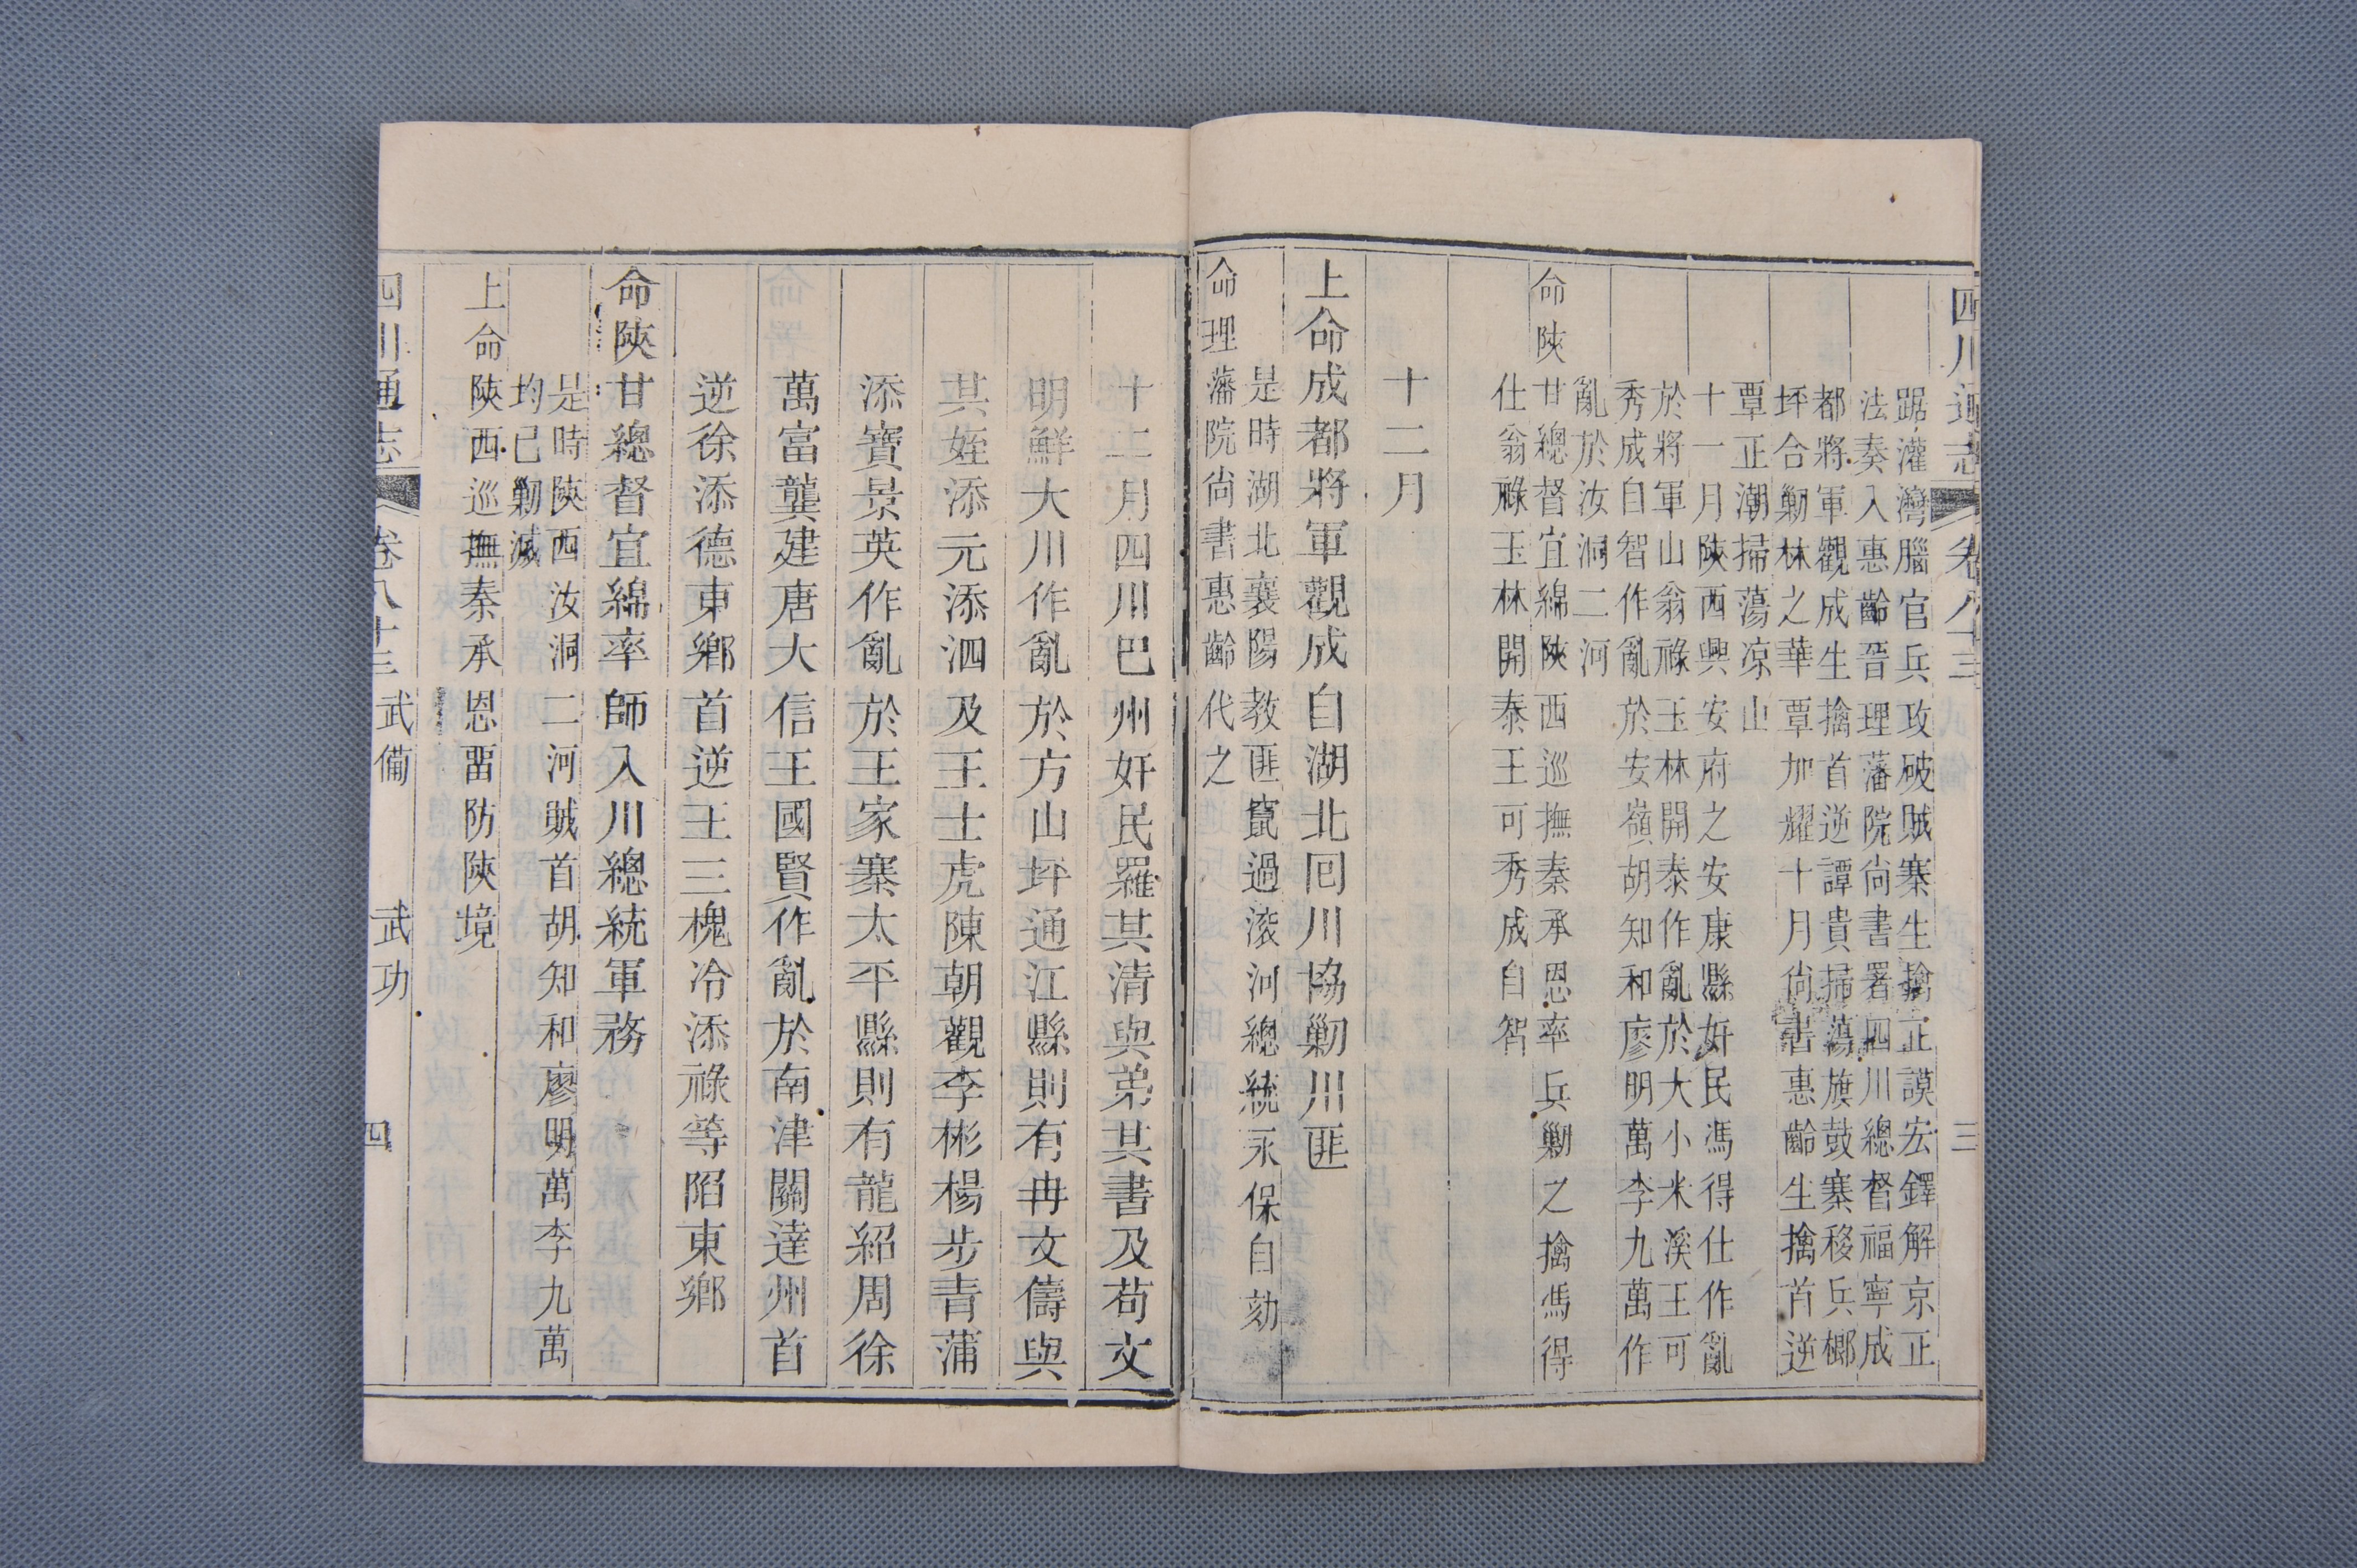 四川通志 卷八十三 三
踞灌灣腦官兵攻破賊寨生擒正謨宏鐸解京正
法奏入惠齡晉理藩院尚書署四川總督福寧成
都將軍觀成生擒首逆譚貴掃蕩旗鼓寨移兵榔
坪合勦林之華覃加耀十月尚書惠齡生擒首逆
覃正潮掃蕩凉山
十一月陝西興安府之安康縣奸民馮得仕作亂
於將軍山翁祿玉林開泰作亂於大小米溪王可
秀成自智作亂於安嶺胡知和廖明萬李九萬作
亂於汝洞二河
命陝甘總督宜綿陝西巡撫秦承恩率兵勦之擒馮得
仕翁祿玉林開泰王可秀成自智
十二月
上命成都將軍觀成自湖北回川協勦川匪
是時湖北襄陽教匪竄過滾河總統永保自劾
命理藩院尚書惠齡代之
十二月四川巴州奸民羅其清與弟其書及苟文
明鮮大川作亂於方山坪通江縣則有冉文儔與
其姪添元添泗及王士虎陳朝觀李彬楊步青蒲
添寶景英作亂於王家寨太平縣則有龍紹周徐
萬富龔建唐大信王國賢作亂於南津關達州首
逆徐添德東鄉首逆王三槐冷添祿等陷東鄉
命陝甘總督宜綿率師入川總統軍務
是時陝西汝洞二河賊首胡知和廖明萬李九萬
均已勦滅
上命陝西巡撫秦承恩畱防陝境
四川通志 卷八十三 武備 武功 四